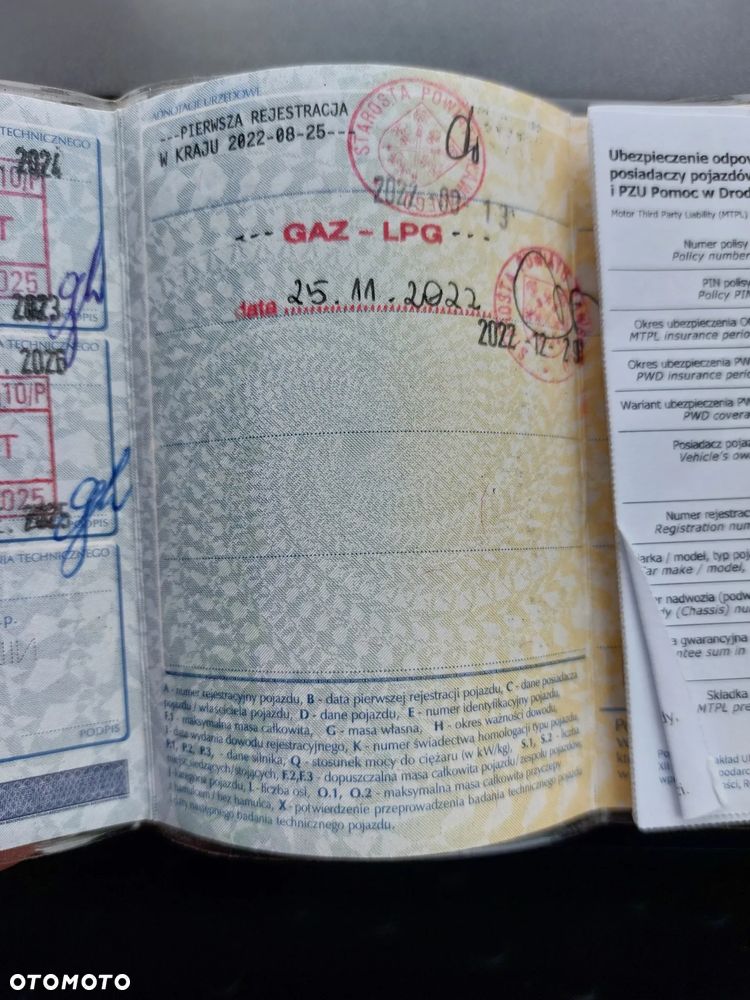 TECHNICZNEGO
2024
10/P
T
2025
2023
PODPIS
TECHNICZNEGO
2026
10/P
T
2025
PODPIS
TECHNICZNEGO
PODPIS
ADNOTACJE URZĘDOWE
---PIERWSZA REJESTRACJA
W KRAJU 2022-08-25---
STAROSTA POW
2022 -09- 13
--- GAZ - LPG ---
data 25.11.2022
2022 -12- 2
A - numer rejestracyjny pojazdu, B - data pierwszej rejestracji pojazdu, C - dane posiadacza
pojazdu / właściciela pojazdu, D - dane pojazdu, E - numer identyfikacyjny pojazdu,
F.1 - maksymalna masa całkowita, G - masa własna, H - okres ważności dowodu,
I - data wydania dowodu rejestracyjnego, K - numer świadectwa homologacji typu pojazdu,
P.1, P.2, P.3, - dane silnika, Q - stosunek mocy do ciężaru (w kW/kg), S.1, S.2 - liczba
miejsc siedzących/stojących, F.2, F.3 - dopuszczalna masa całkowita pojazdu/zespołu pojazdów,
J - kategoria pojazdu, L - liczba osi, O.1, O.2 - maksymalna masa całkowita przyczepy
z hamulcem / bez hamulca, X - potwierdzenie przeprowadzenia badania technicznego pojazdu
następnego badania technicznego pojazdu.
Ubezpieczenie odpow
posiadaczy pojazdów
i PZU Pomoc w Drod
Motor Third Party Liability (MTPL)
Numer polisy
Policy number
PIN polisy
Policy PIN
Okres ubezpieczenia O
MTPL insurance perio
Okres ubezpieczenia PW
PWD insurance perio
Wariant ubezpieczenia PW
PWD covera
Posiadacz poja
Vehicle's ow
Numer rejestrac
Registration num
arka / model, typ poj
ar make / model,
r nadwozia (podw
y (Chassis) nu
a gwarancyjna
ntee sum in
Składka
MTPL pre
OTOMOTO